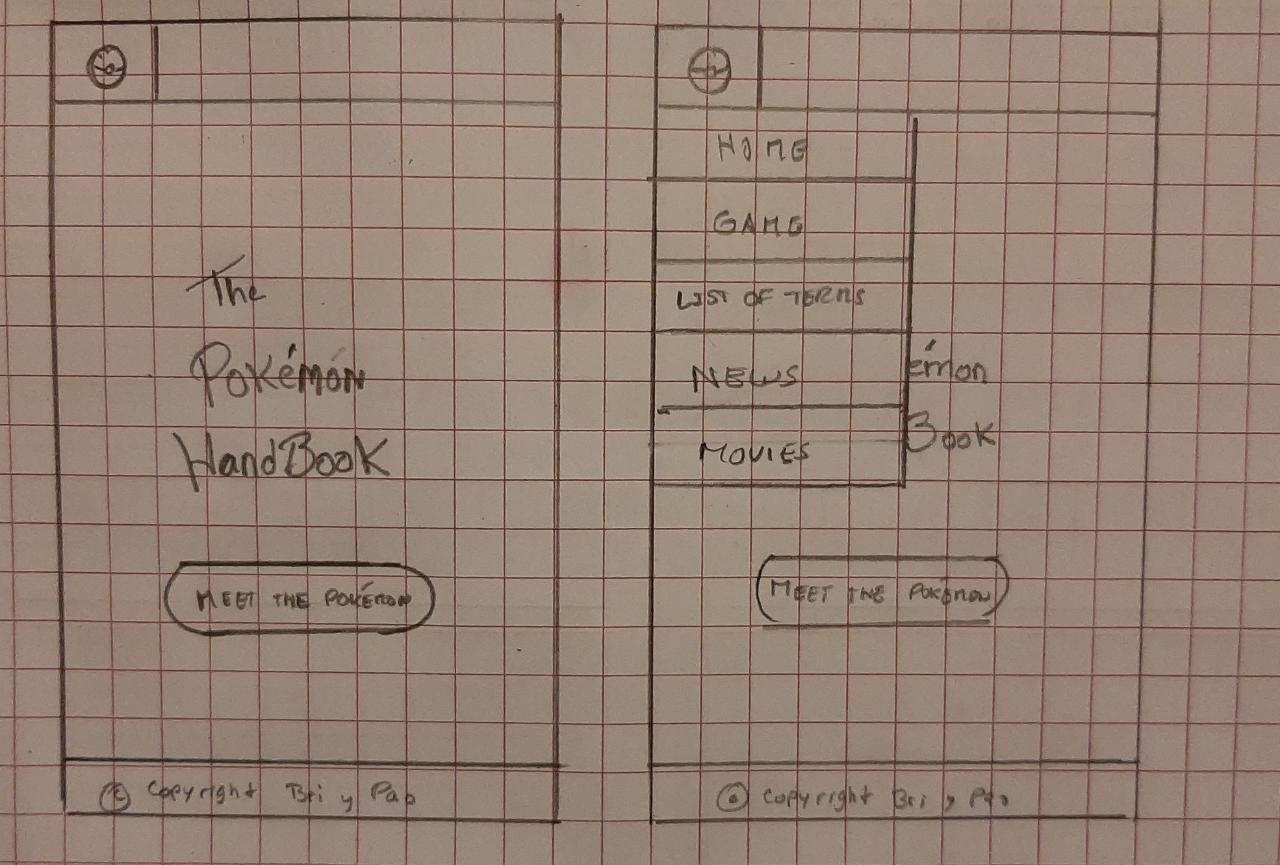 The
Pokémón
HandBook
MEET THE POKÉMON
© Copyright Bri y Pao
HOME
GAME
LIST OF TERMS
NEWS
MOVIES
émon
Book
MEET THE POKÉMON
© Copyright Bri y Pao